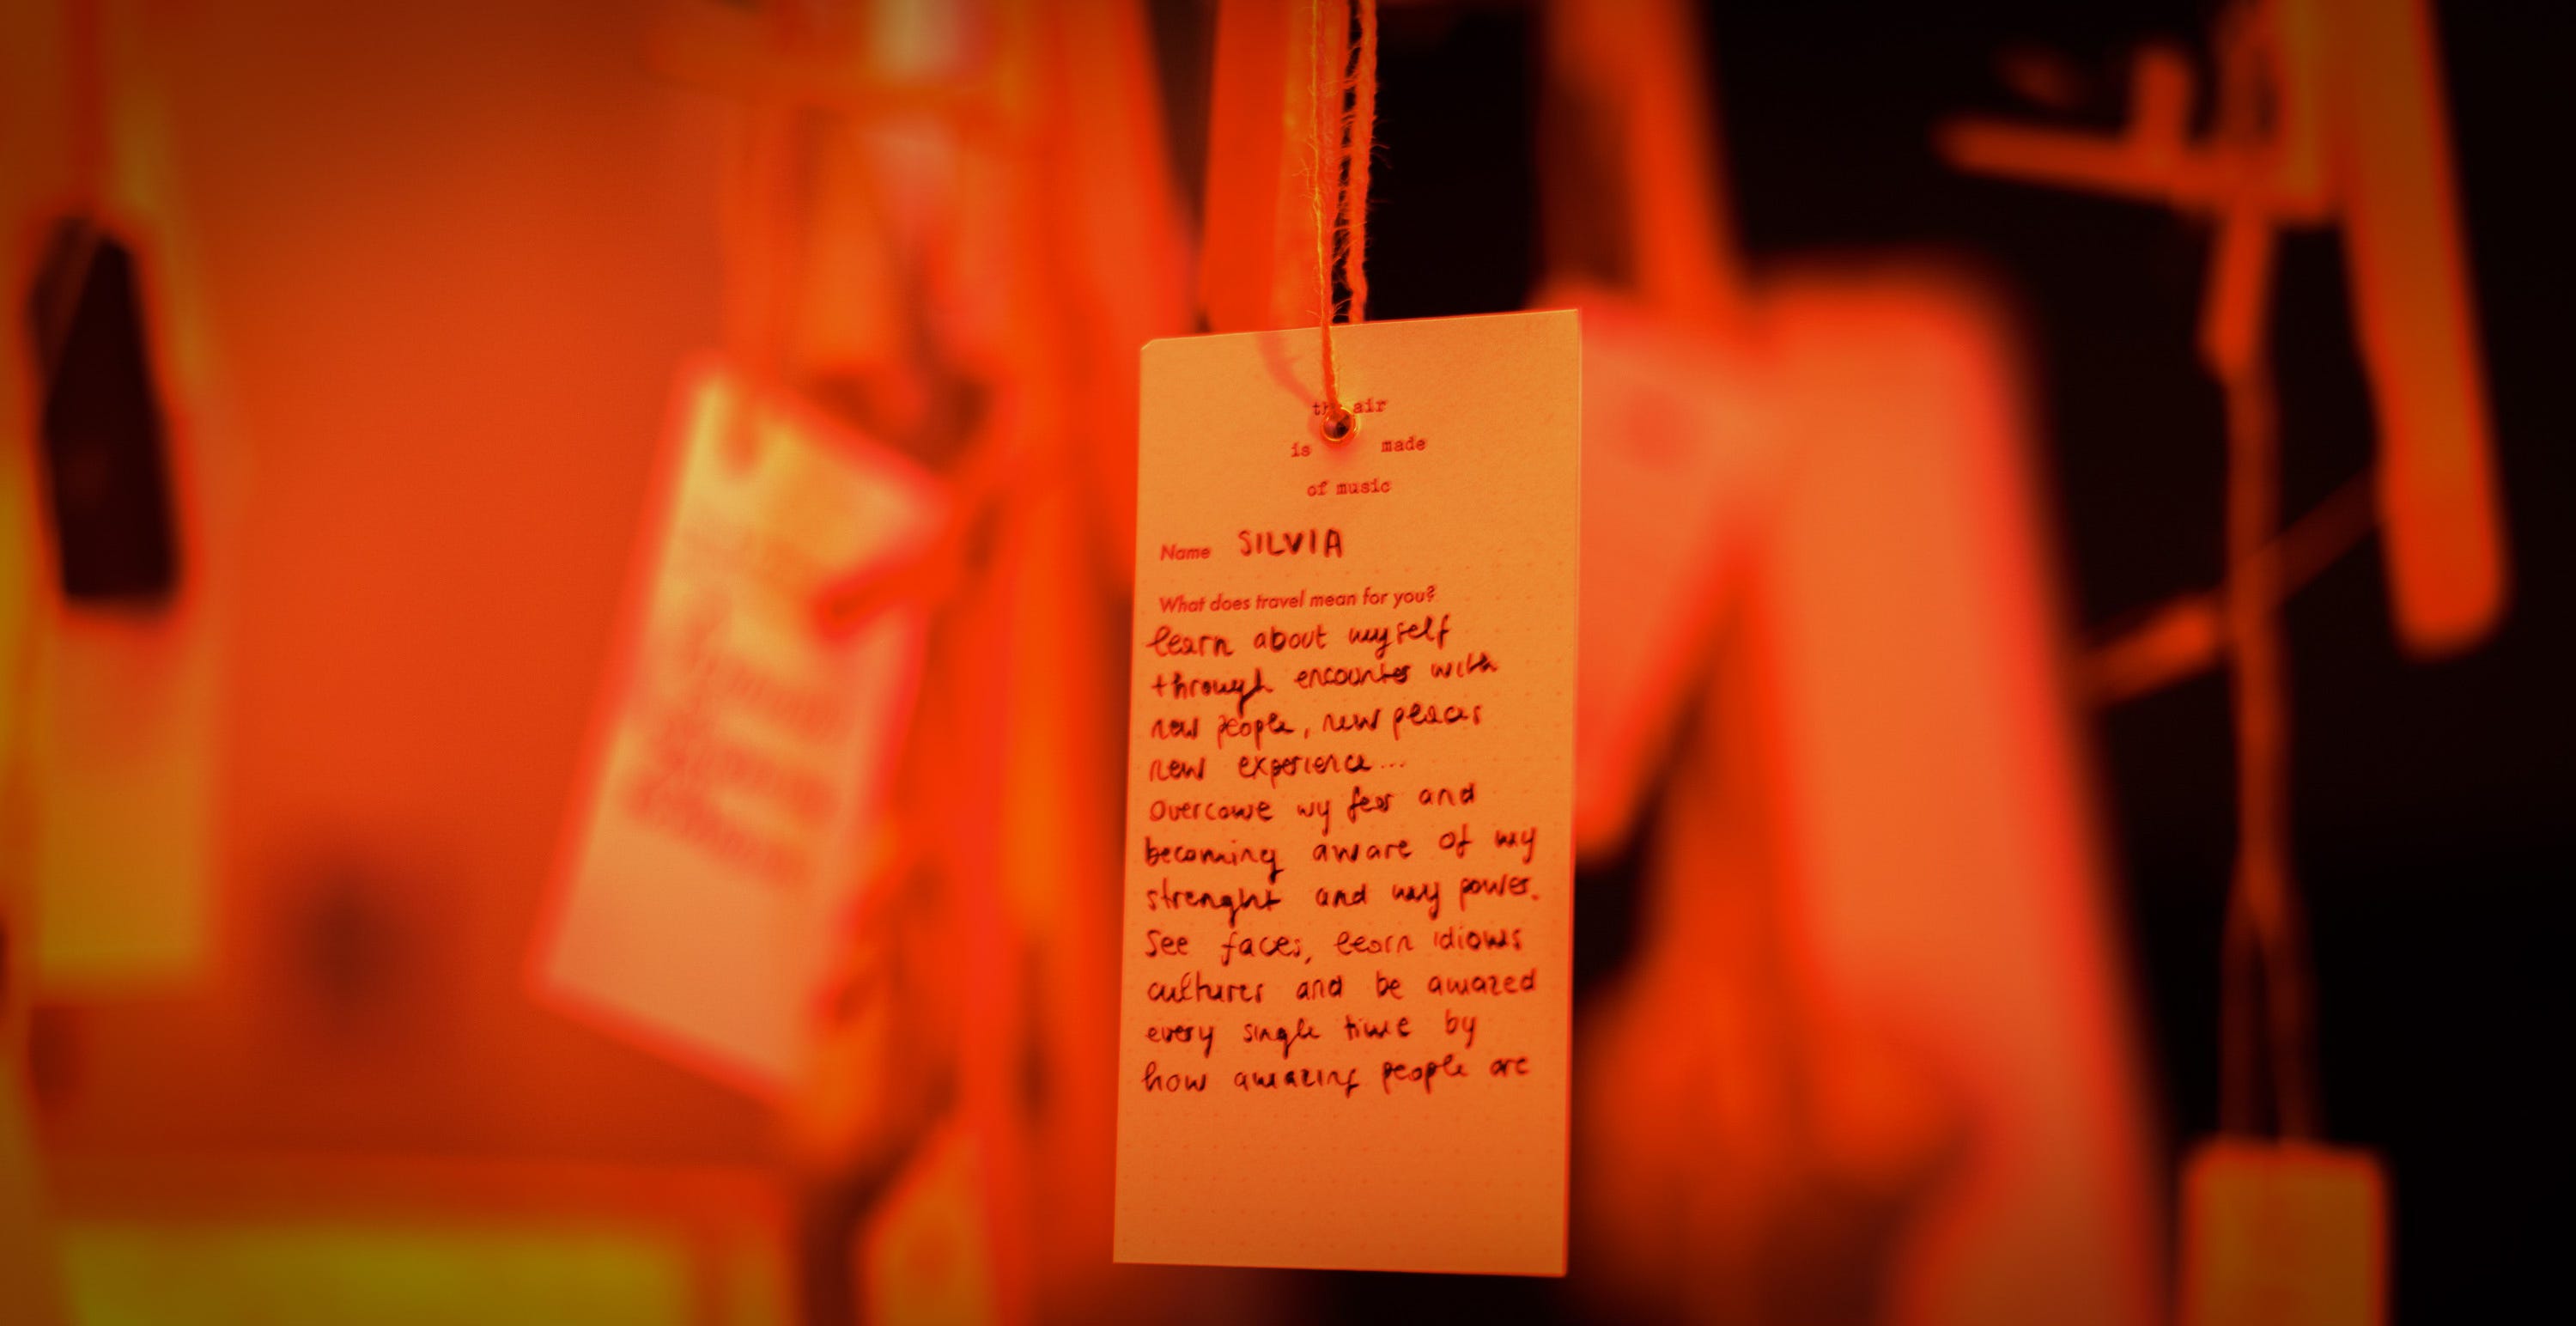 the air
is made
of music
Name SILVIA
What does travel mean for you?
learn about myself
through encounter with
new people, new places
new experience...
Overcome my fear and
becoming aware of my
strenght and my power.
See faces, learn idioms
cultures and be amazed
every single time by
how amazing people are